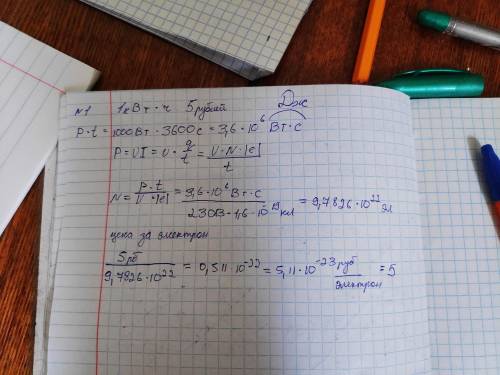 №1 1кВт·ч 5 рублей Дж
P·t = 1000Вт · 3600с = 3,6·10⁶ Вт·с
P = UI = U · q/t = U·N·|e|/t
N = P·t/U·|e| = 3,6·10⁶Вт·с/230В·1,6·10⁻¹⁹Кл = 9,7826·10²² эл
цена за электрон
5рб/9,7826·10²² = 0,511·10⁻²² = 5,11·10⁻²³ руб/электрон = 5